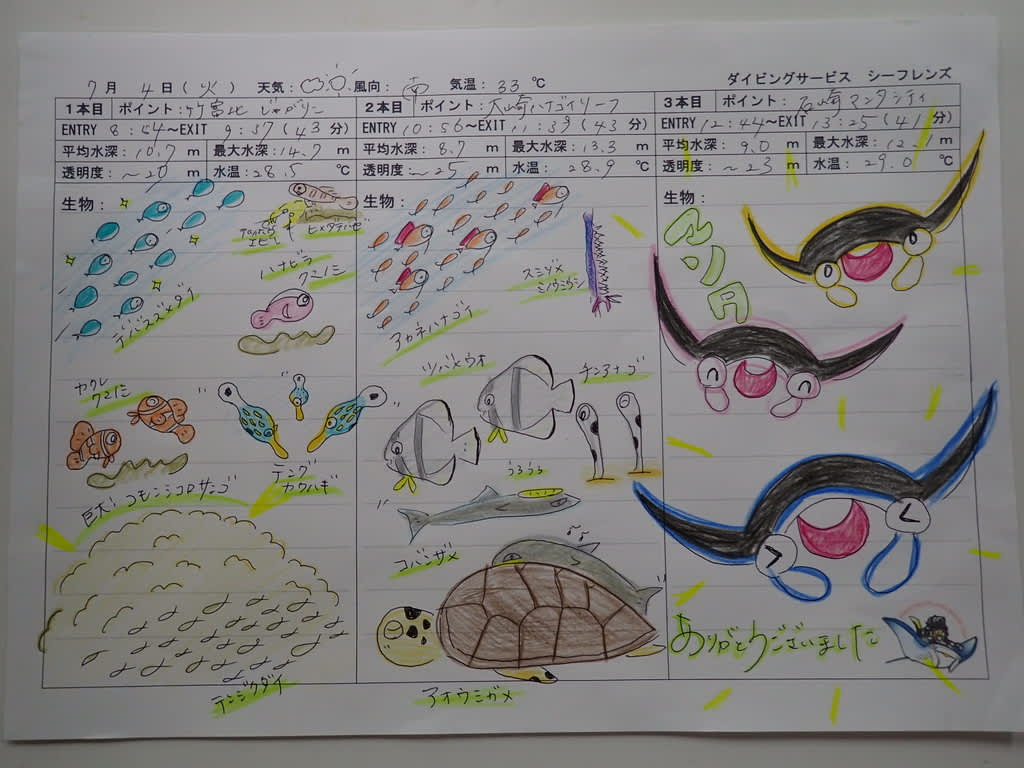 ダイビングサービス シーフレンズ
7月 4日(火) 天気: 風向: 南 気温: 33 ℃
1本目 ポイント:竹富北 じゃがりこ
ENTRY 8:54～EXIT 9:37(43分)
平均水深:10.7 m 最大水深:14.7 m
透明度:～20 m 水温:28.5 ℃
生物:
ヒメダテハゼ
ハナビラ
クマノミ
デバスズメダイ
ヤクレ
クマノミ
テング
カワハギ
巨大!コモンシコロサンゴ
テンジクダイ
2本目 ポイント:大崎ハナゴイリーフ
ENTRY 10:56～EXIT 11:39(43分)
平均水深:8.7 m 最大水深:13.3 m
透明度:～25 m 水温:28.9 ℃
生物:
スミゾメ
ミノウミウシ
アカネハナゴイ
ツバメウオ
チンアナゴ
うろうろ
コバンザメ
アオウミガメ
3本目 ポイント:石崎マンタシティ
ENTRY 12:44～EXIT 13:25(41分)
平均水深:9.0 m 最大水深:12.1 m
透明度:～23 m 水温:29.0 ℃
生物:
マンタ
ありがとうございました